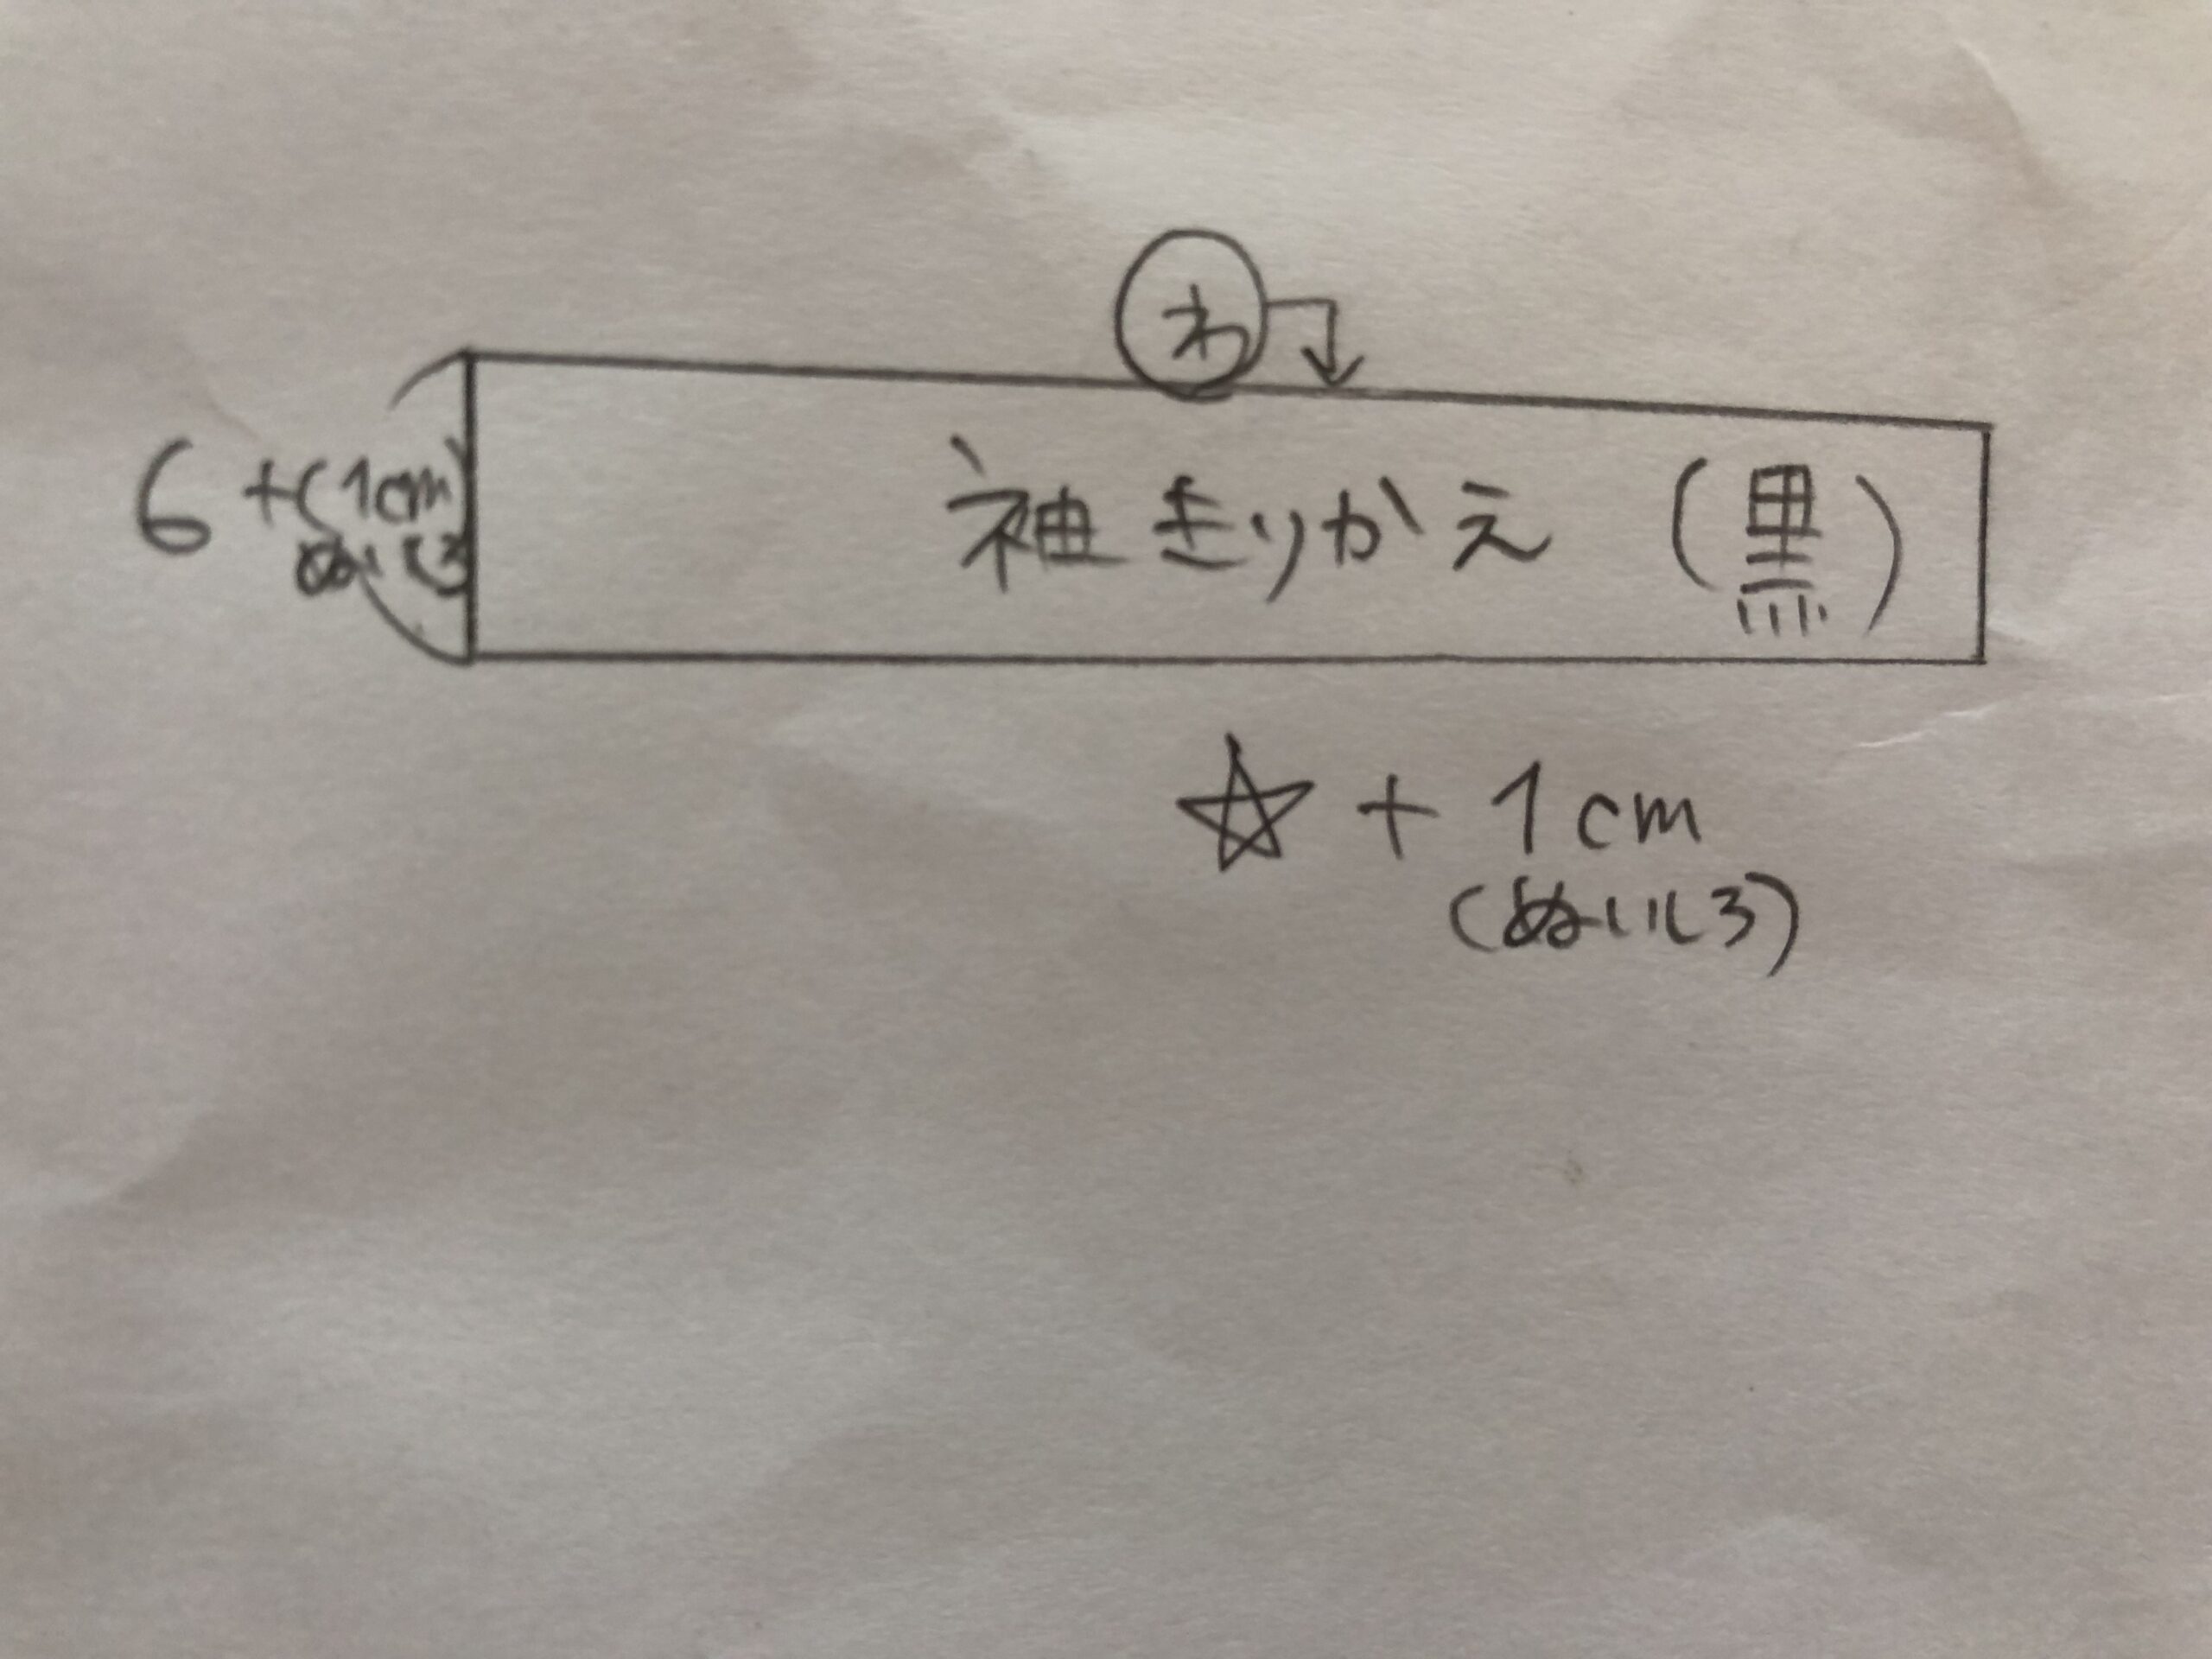 わ
6+(1cm)
ぬいしろ
袖きりかえ(黒)
☆+1cm
(ぬいしろ)